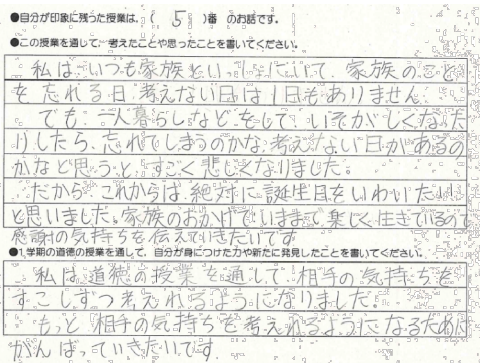 ●自分が印象に残った授業は、( 5 )番 のお話です。
●この授業を通して、考えたことや思ったことを書いてください。
私は、いつも家族といっしょにいて、家族のこと
を忘れる日、考えない日は1日もありません。
でも、一人暮らしなどをして、いそがしくなった
りしたら、忘れてしまうのかな、考えない日があるの
かなと思うと、すごく悲しくなりました。
だから、これからは、絶対に誕生日をいわいたい
と思いました。家族のおかげで、いままで楽しく生きているので
感謝の気持ちを伝えていきたいです
●1学期の道徳の授業を通して、自分が身につけた力や新たに発見したことを書いてください。
私は、道徳の授業を通して、相手の気持ちを
すこしずつ考えれるようになりました。
もっと、相手の気持ちを考えれるようになるために
がんばっていきたいです